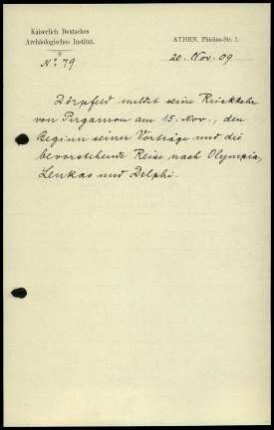 Kaiserlich Deutsches
Archäologisches Institut.
ATHEN, Phidias-Str. 1.
No 79
20. Nov. 09
Dörpfeld meldet seine Rückkehr
von Pergamon am 15. Nov., den
Beginn seiner Vorträge und die
bevorstehende Reise nach Olympia,
Leukas und Delphi.